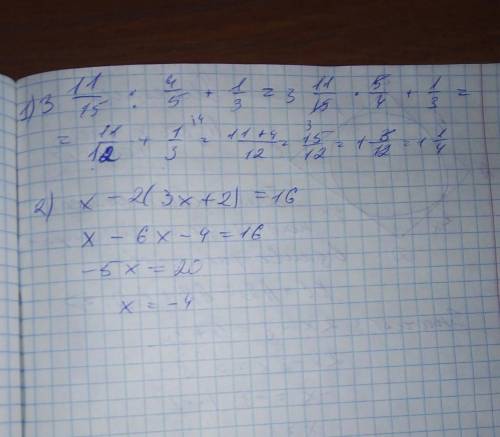 1) 3 11/15 : 4/5 + 1/3 = 3 11/15 · 5/4 + 1/3 =
= 11/12 + 1/3 ^(·4) = (11+4)/12 = 15/12 = 1 3/12 = 1 1/4
2) x - 2(3x+2) = 16
x - 6x - 4 = 16
-5x = 20
x = -4